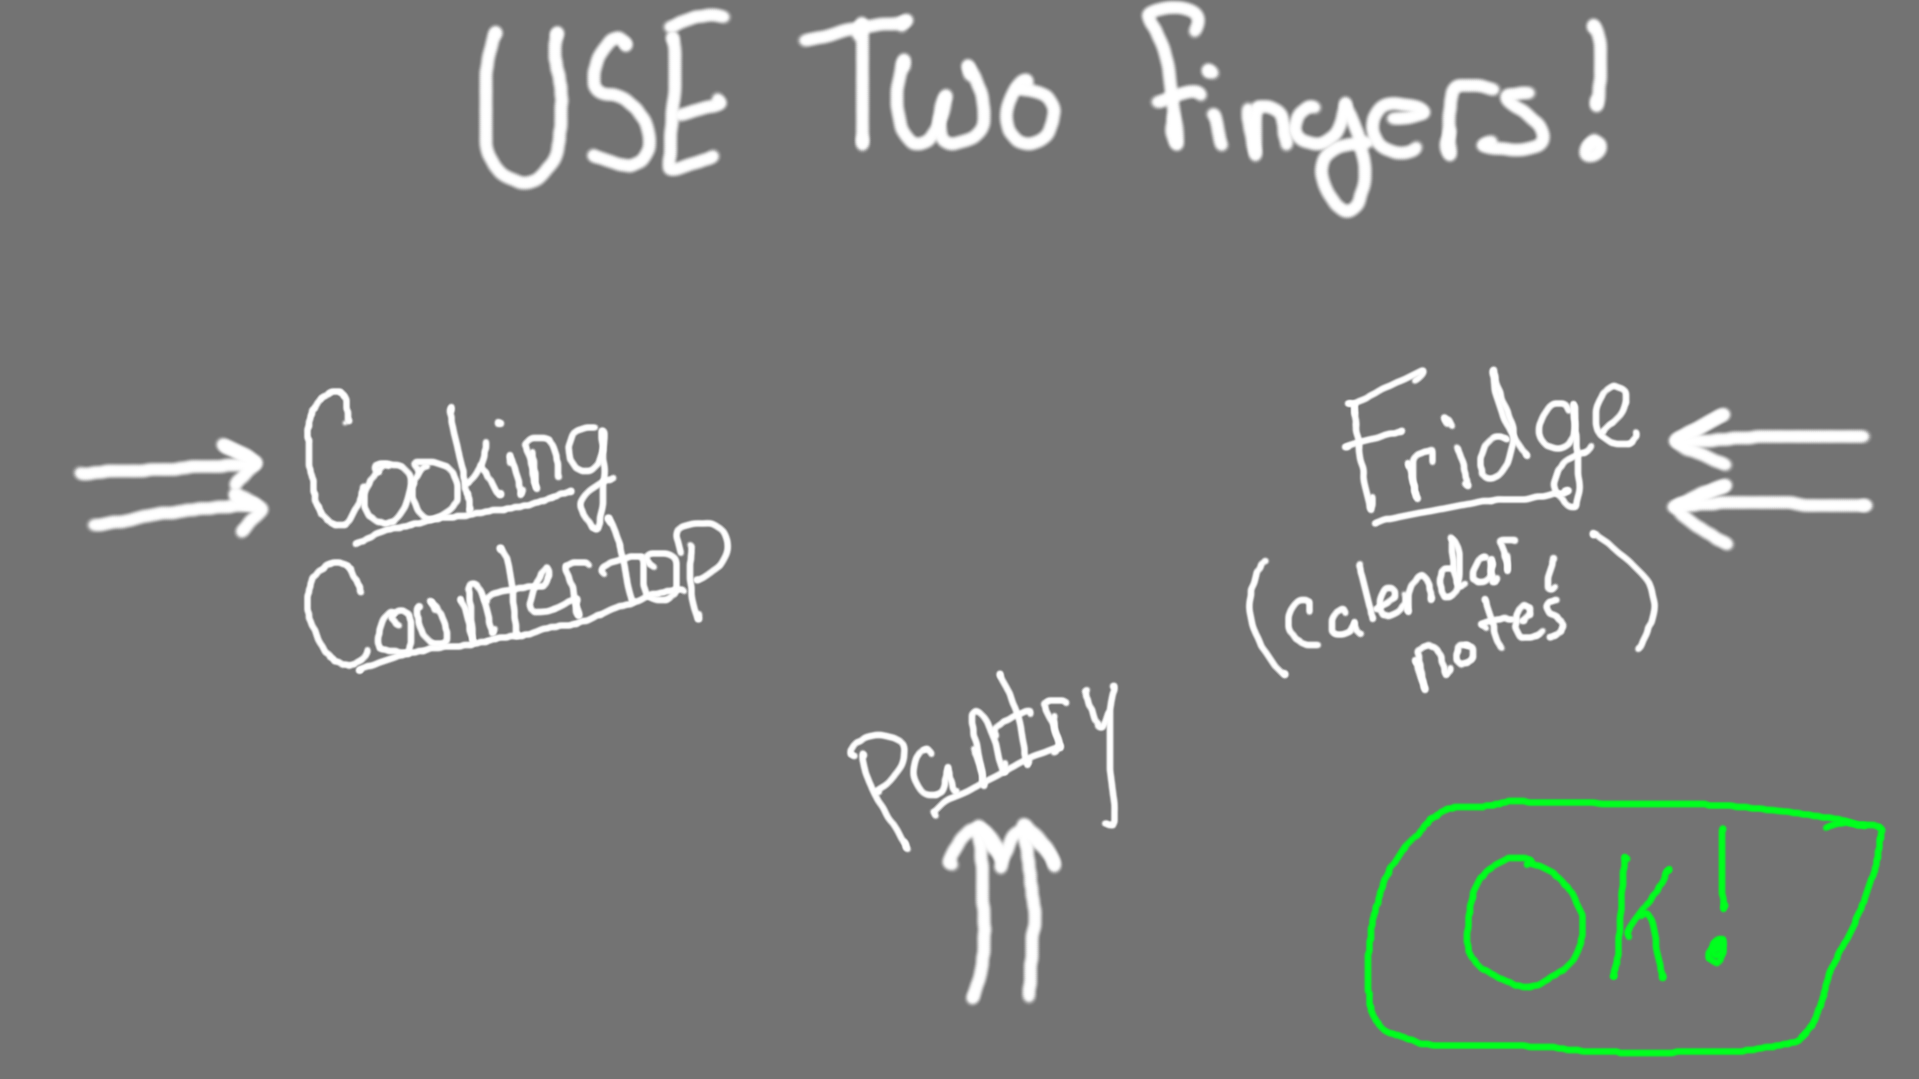 USE Two fingers!
Cooking
Countertop
Fridge
(calendar,
notes)
Pantry
OK!